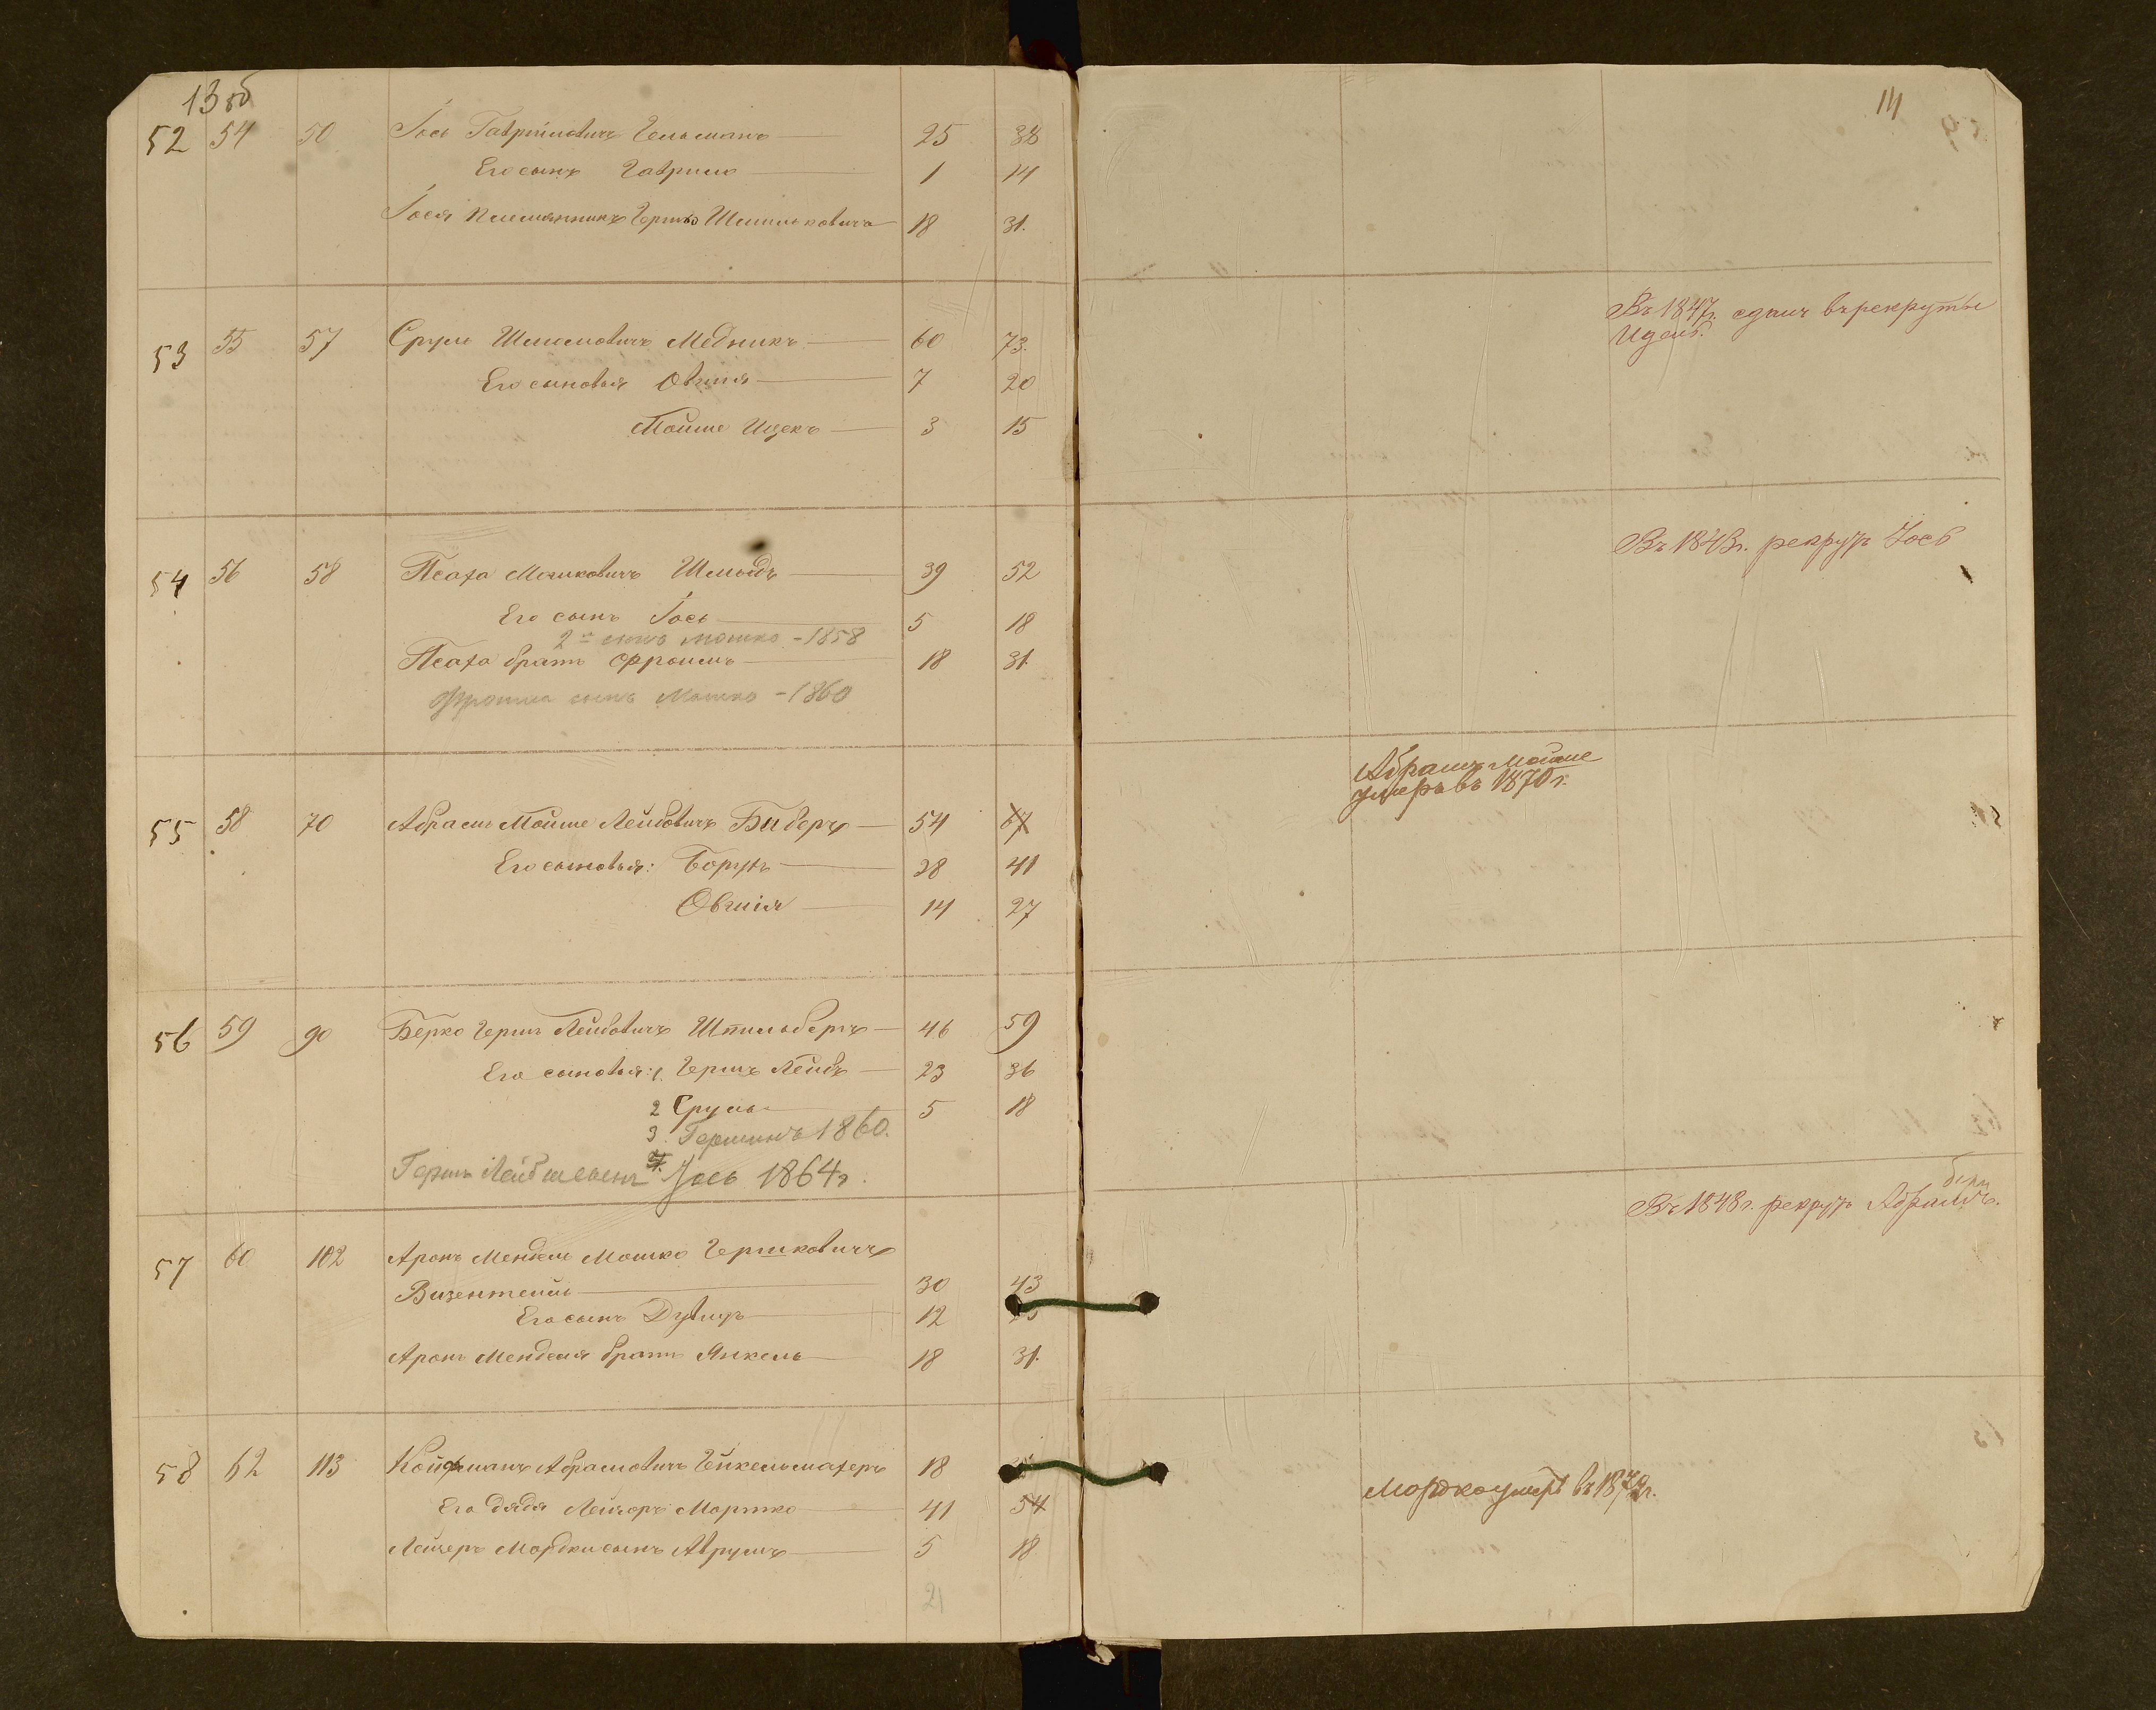 13 об
52 54 50 Іось Гаврiиловичъ Гельманъ 25 38
Его сынъ Гаврило 1 14
Іося племянникъ Гершъ Шмульковичъ 18 31.
53 55 57 Сруль Шмулевичъ Мѣдникъ 60 73.
Его сыновья Овшія 7 20
Мойше Ицекъ 3 15
54 56 58 Псаха Мошковичъ 39 52
Его сынъ Іось 5 18
2й сынъ Мошко - 1858
Псаха братъ Фроимъ 18 31.
Фроима сынъ Мошко - 1860
55 58 70 Абрамъ Мойше Лейбовичъ Биберъ 54 67
Его сыновья: Борухъ 28 41
Овшія 14 27
56 59 90 Берко Гершъ Лейбовичъ Шпильбергъ 46 59
Его сыновья: 1. Гершъ Лейбъ 23 36
2 Сруль 5 18
3. 1860.
Гершъ Лейба сынъ Іось 1864 г.
57 60 102 Аронъ Мендель Мошко Гершковичъ
Визентель 30 43
Его сынъ Дувидъ 12
Аронъ Менделя братъ Янкель 18 31.
58 62 113 Койфманъ Абрамовичъ Гейкельмахеръ 18
Его дядя Лейзеръ Мортко 41 54
Лейзеръ Мордки сынъ Аврумъ 5 18
21
14
Въ 1847 г. сданъ въ рекруты
Въ 1843 г. рекрутъ Іось
Абрамъ Мойше
умеръ въ 1870 г.
Въ 1848 г. рекрутъ Абрамъ.
Мордко умеръ въ 1872 г.